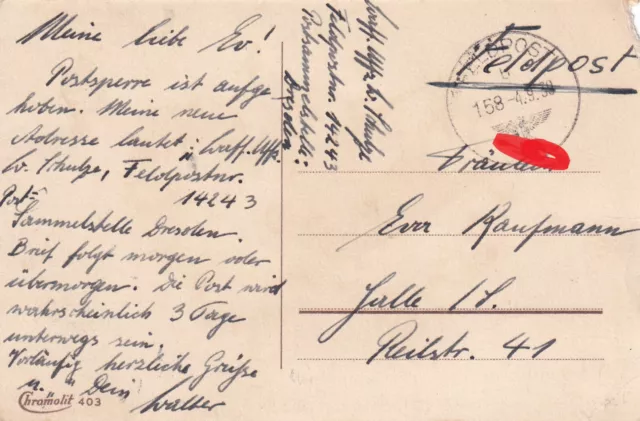 Meine liebe Ev!
Postsperre ist aufge
hoben. Meine neue
Adresse lautet: Waff. Uffz.
W. Schulze, Feldpostnr.
14243
Post-
Sammelstelle Dresden.
Brief folgt morgen oder
übermorgen. Die Post wird
wahrscheinlich 3 Tage
unterwegs sein.
Vorläufig herzliche Grüße
u. " Dein
Walter
Chromolit 403
Waff. Uffz. W. Schulze
Feldpostnr. 14243
Postsammelstelle:
Dresden
Feldpost
FELDPOST
b
158 -4.9.
Fräulein
Eva Kaufmann
Halle /S.
Reilstr. 41